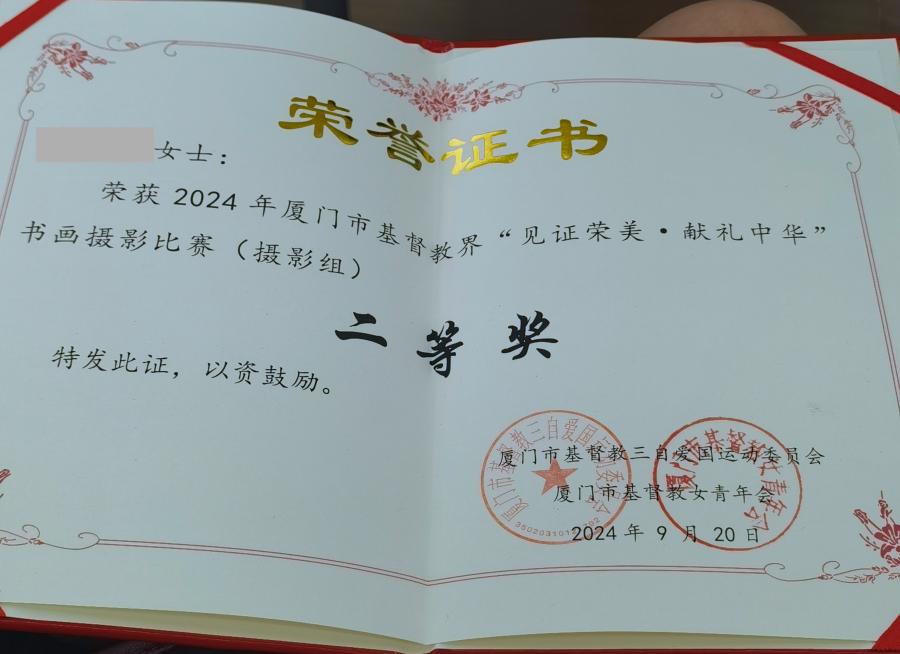 荣誉证书
女士：
荣获 2024 年厦门市基督教界“见证荣美·献礼中华”
书画摄影比赛（摄影组）
二等奖
特发此证，以资鼓励。
厦门市基督教三自爱国运动委员会
厦门市基督教女青年会
2024 年 9 月 20 日
厦门市基督教三自爱国运动委员会
厦门市基督教女青年会